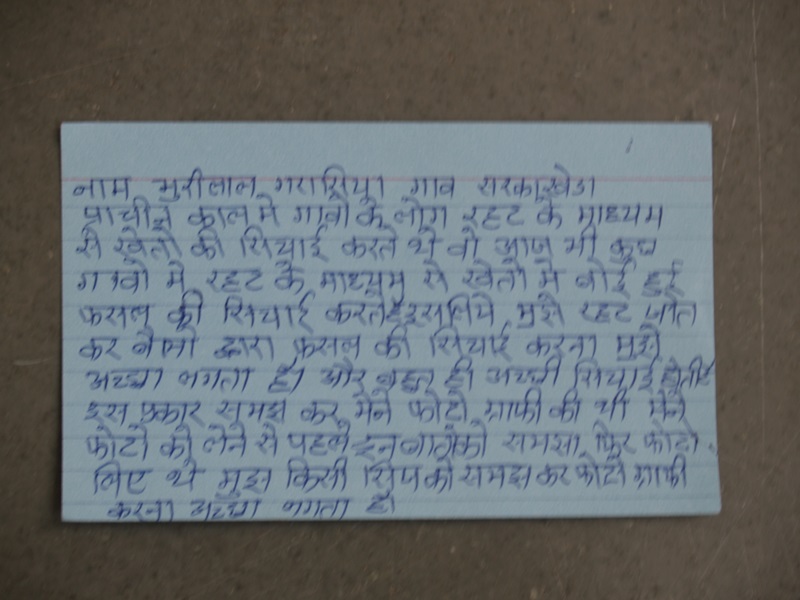 नाम भुरीलाल गरासिया गाव सरकाखेडा
प्राचीन काल मे गावो के लोग रहट के माध्यम
से खेतो की सिचाई करते थे वो आज भी कुछ
गावो मे रहट के माध्यम से खेतो मे बोई हुई
फसल की सिचाई करते है इसलिये मुझे रहट जोत
कर बैलो द्वारा फसल की सिचाई करना मुझे
अच्छा लगता है। और बहुत ही अच्छी सिचाई होती है
इस प्रकार समझ कर मेने फोटो ग्राफी की थी मेने
फोटो को लेने से पहले इन बातो को समझा फिर फोटो
लिए थे मुझे किसी को समझ कर फोटो ग्राफी
करना अच्छा लगता है।